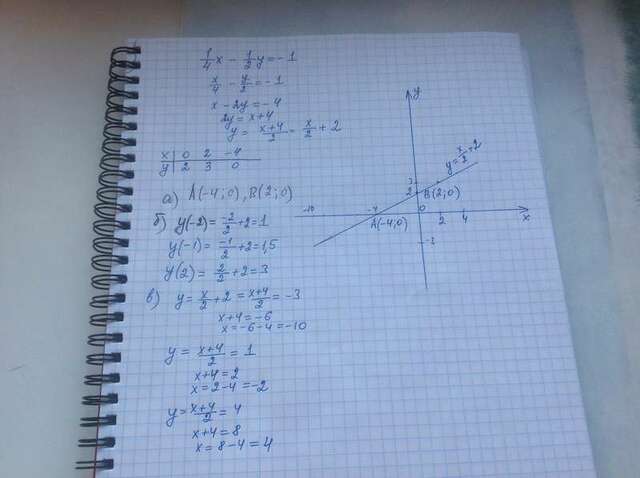 1/4 x - 1/2 y = -1
x/4 - y/2 = -1
x - 2y = -4
2y = x+4
y = x+4/2 = x/2 + 2
x | 0 2 -4
y | 2 3 0
а) A(-4;0), B(2;0)
б) y(-2) = -2/2 + 2 = 1
y(-1) = -1/2 + 2 = 1,5
y(2) = 2/2 + 2 = 3
в) y = x/2 + 2 = x+4/2 = -3
x+4 = -6
x = -6-4 = -10
y = x+4/2 = 1
x+4 = 2
x = 2-4 = -2
y = x+4/2 = 4
x+4 = 8
x = 8-4 = 4
y
y = x/2 + 2
3
2
B(2;0)
-10
-4
0
2
4
x
A(-4;0)